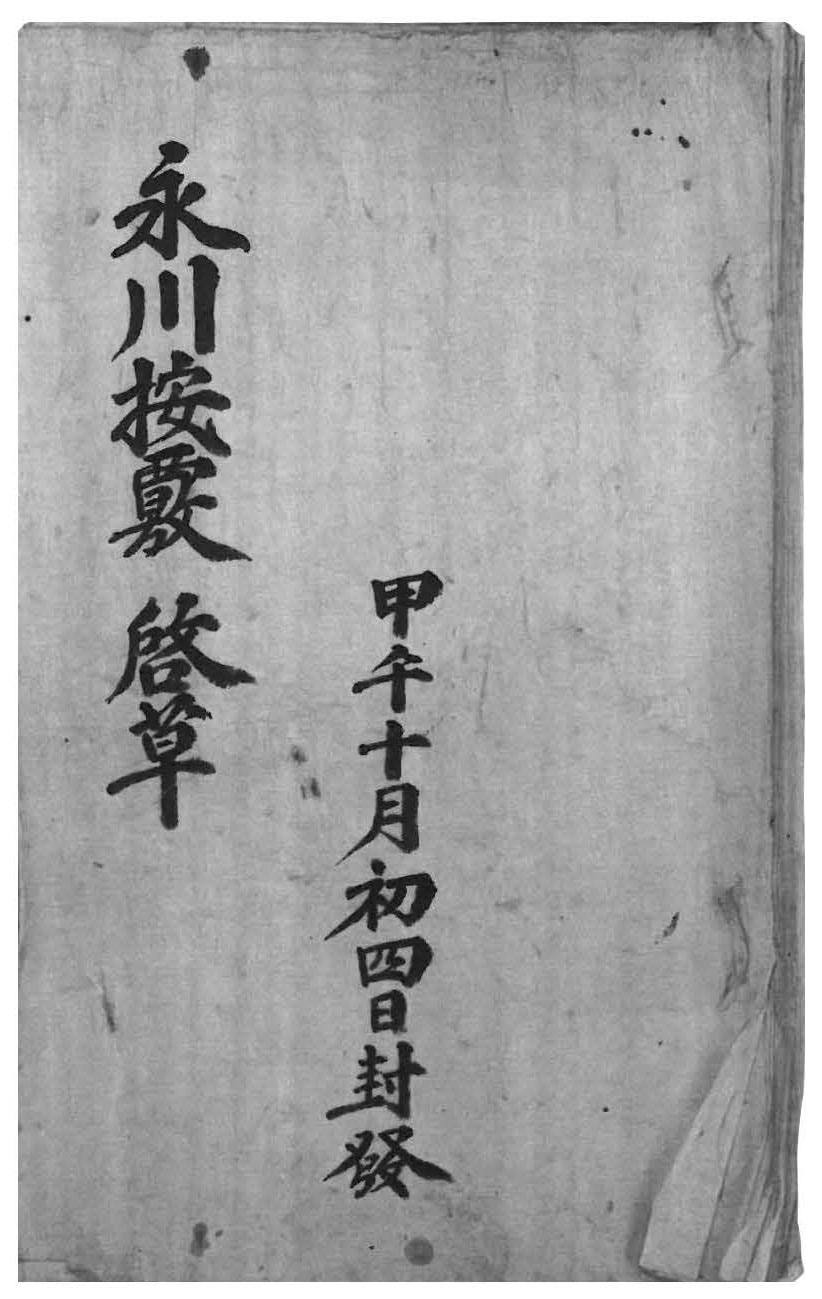 甲午十月初四日封發
永川按覈 啓草